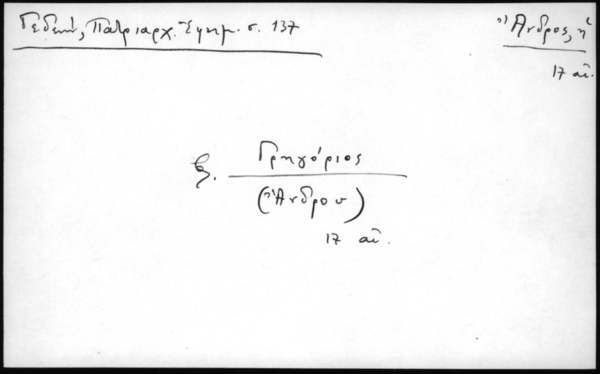 Γεδεών, Πατριαρχ. Ἐφημ. σ. 137
Ἄνδρος, ἡ
17 αἰ.
β. Γρηγόριος
(Ἄνδρου)
17 αἰ.